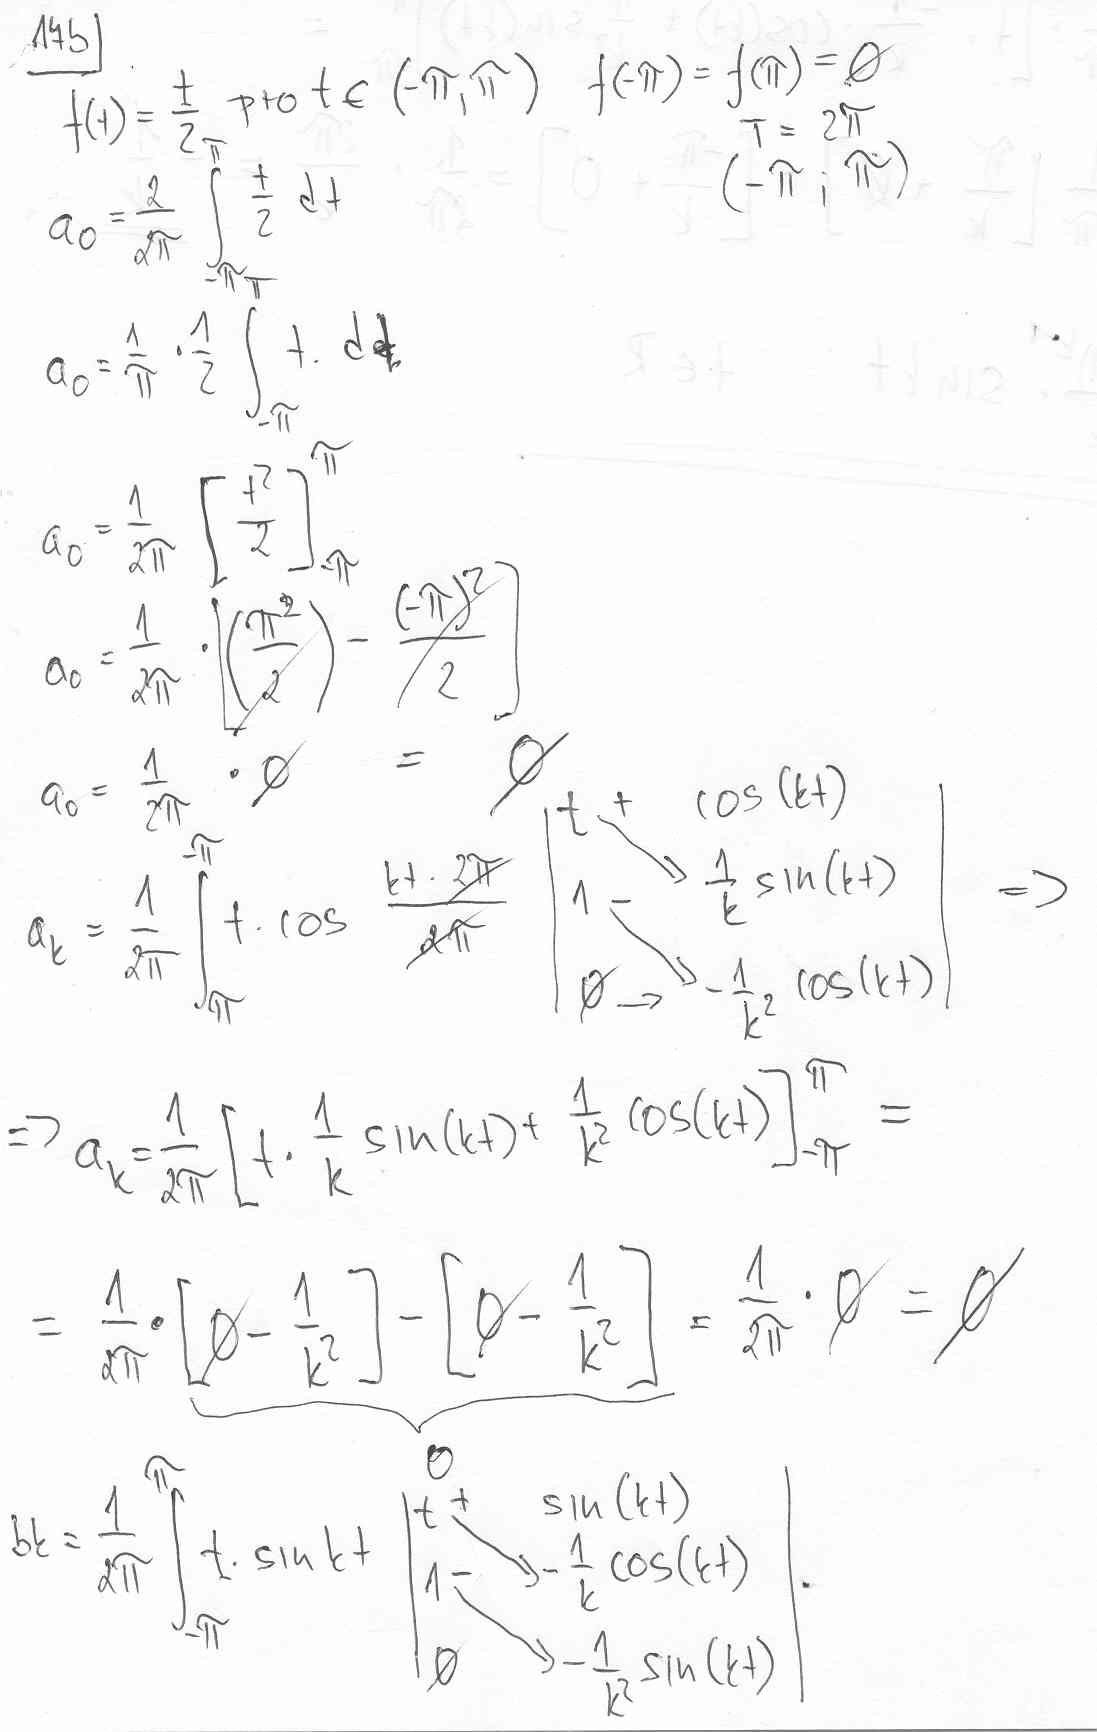 17b
f(t) = t/2 pro t ∈ (-π, π) f(-π) = f(π) = ∅
T = 2π
(-π; π)
a₀ = 2/2π ∫_{-π}^{π} t/2 dt
a₀ = 1/π · 1/2 ∫_{-π}^{π} t. dt
a₀ = 1/2π [t²/2]_{-π}^{π}
a₀ = 1/2π · [(π²/2) - (-π)²/2]
a₀ = 1/2π · ∅ = ∅
a_k = 1/2π ∫_{π}^{-π} t. cos kt · 2π/2π | t + cos(kt)
1 - 1/k sin(kt)
∅ → -1/k² cos(kt) | =>
=> a_k = 1/2π [t · 1/k sin(kt) + 1/k² cos(kt)]_{-π}^{π} =
= 1/2π · [∅ - 1/k²] - [∅ - 1/k²] = 1/2π · ∅ = ∅
0
bk = 1/2π ∫_{-π}^{π} t. sin kt | t + sin(kt)
1 - -1/k cos(kt)
∅ -1/k² sin(kt) |